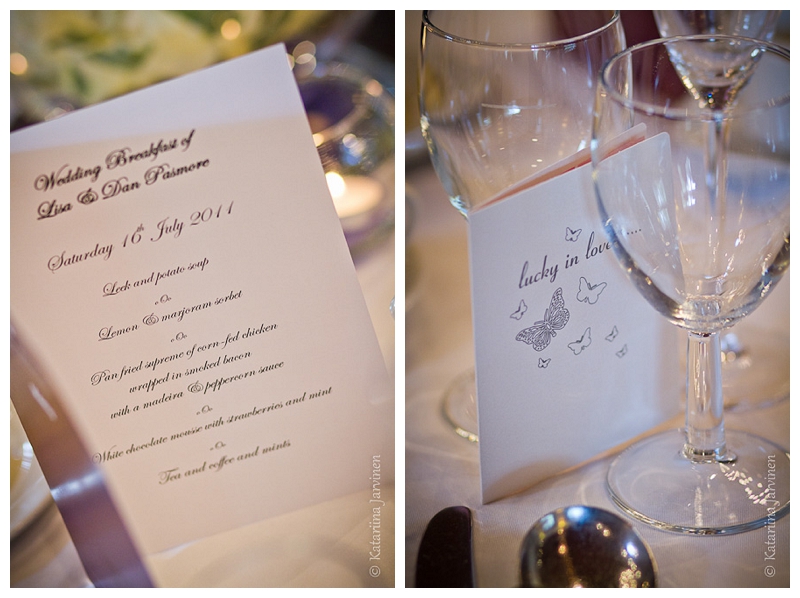 Wedding Breakfast of
Lisa & Dan Pasmore
Saturday 16th July 2011
Leek and potato soup
Lemon & marjoram sorbet
Pan fried supreme of corn-fed chicken
wrapped in smoked bacon
with a madeira & peppercorn sauce
White chocolate mousse with strawberries and mint
Tea and coffee and mints
© Katariina Jarvinen
lucky in love ....
© Katariina Jarvinen